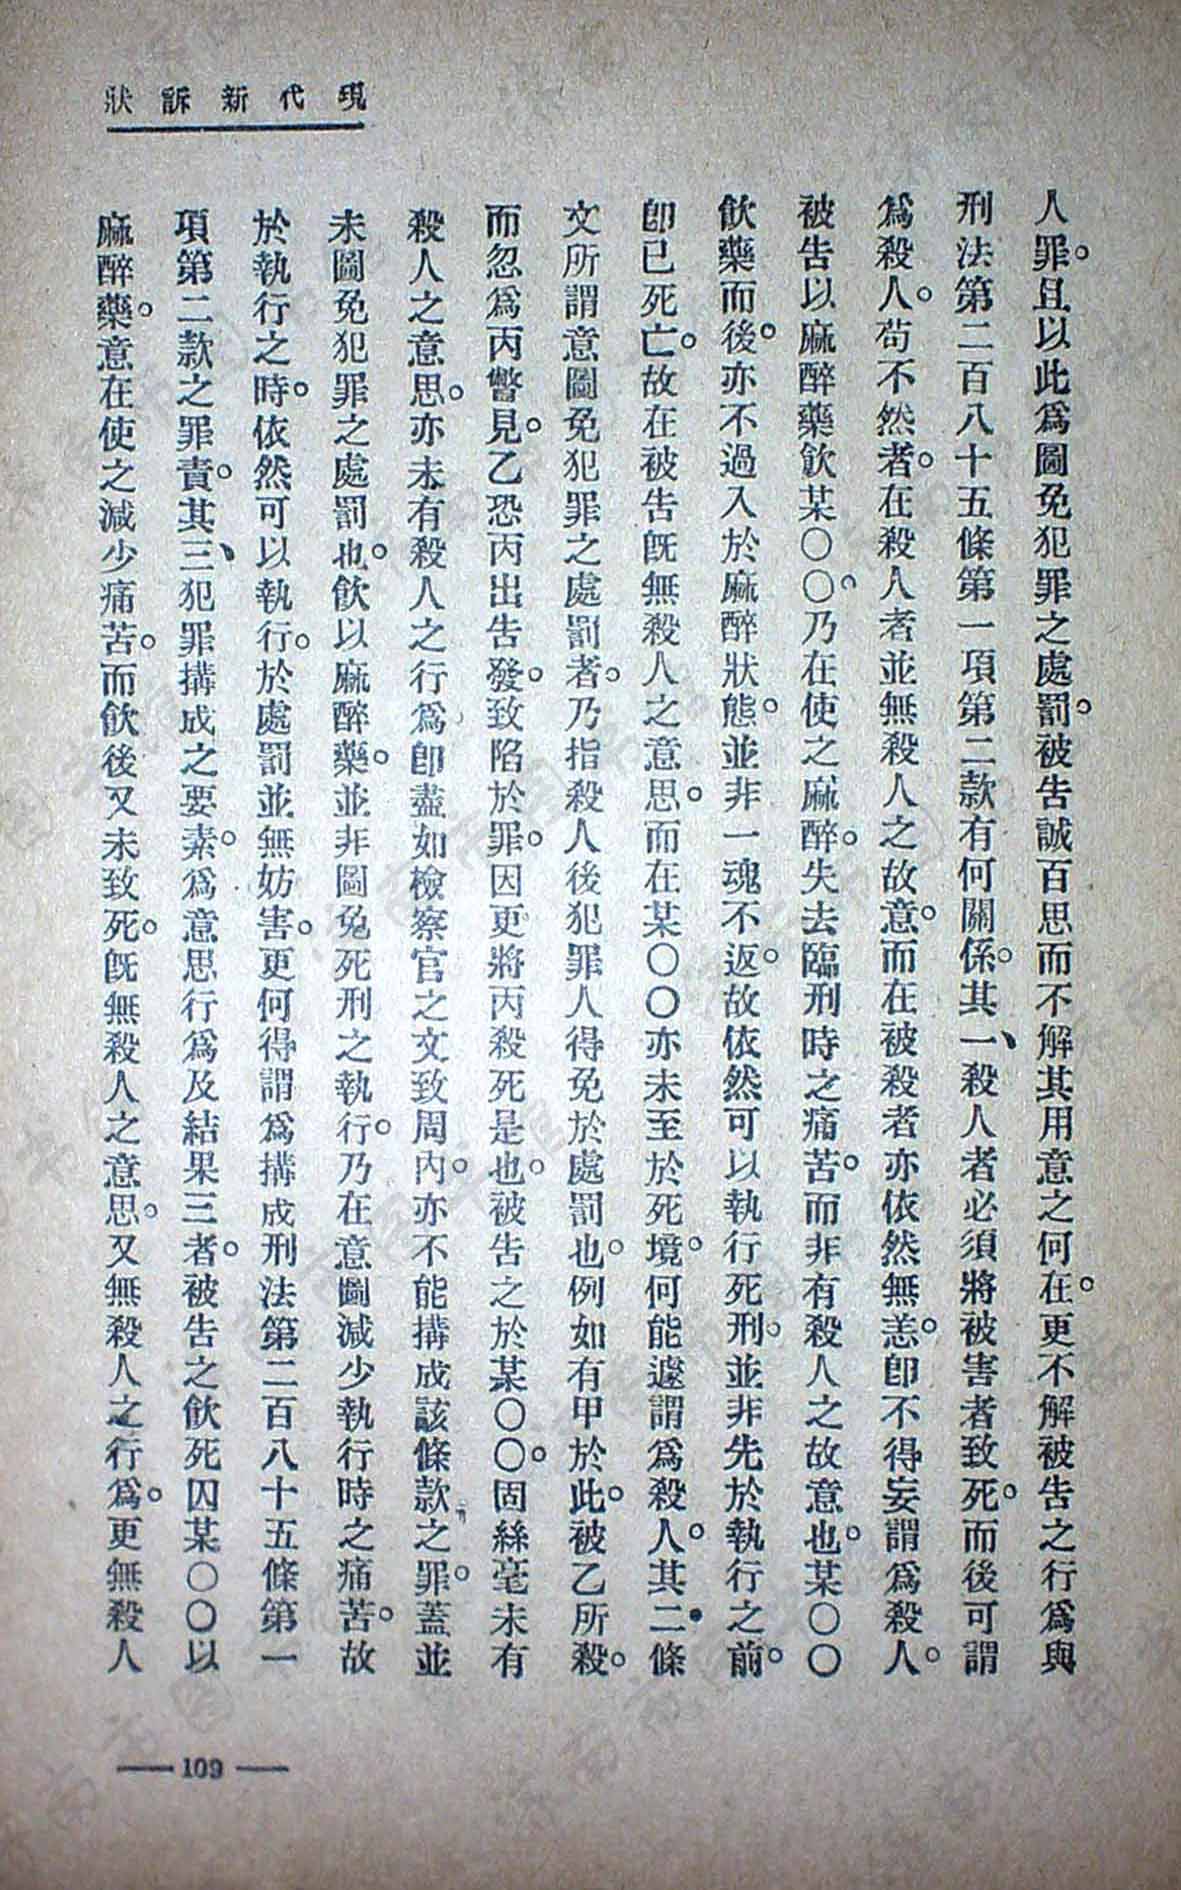 現代新訴狀
人罪。且以此爲圖免犯罪之處罰。被告誠百思而不解其用意之何在。更不解被告之行爲與
刑法第二百八十五條第一項第二款有何關係。其一、殺人者必須將被害者致死。而後可謂
爲殺人。苟不然者。在殺人者並無殺人之故意。而在被殺者亦依然無恙。卽不得妄謂爲殺人。
被告以麻醉藥飮某〇〇。乃在使之麻醉。失去臨刑時之痛苦。而非有殺人之故意也。某〇〇
飮藥而後。亦不過入於麻醉狀態。並非一魂不返。故依然可以執行死刑。並非先於執行之前。
卽已死亡。故在被告旣無殺人之意思。而在某〇〇亦未至於死境。何能遽謂爲殺人。其二、條
文所謂意圖免犯罪之處罰者。乃指殺人後犯罪人得免於處罰也。例如有甲於此。被乙所殺。
而忽爲丙瞥見。乙恐丙出告發。致陷於罪。因更將丙殺死是也。被告之於某〇〇。固絲毫未有
殺人之意思。亦未有殺人之行爲。卽盡如檢察官之文致周內。亦不能搆成該條款之罪。蓋並
未圖免犯罪之處罰也。飮以麻醉藥。並非圖免死刑之執行。乃在意圖減少執行時之痛苦。故
於執行之時。依然可以執行。於處罰並無妨害。更何得謂爲搆成刑法第二百八十五條第一
項第二款之罪責。其三、犯罪搆成之要素。爲意思行爲及結果三者。被告之飮死囚某〇〇以
麻醉藥。意在使之減少痛苦。而飮後又未致死。旣無殺人之意思。又無殺人之行爲。更無殺人
— 109 —